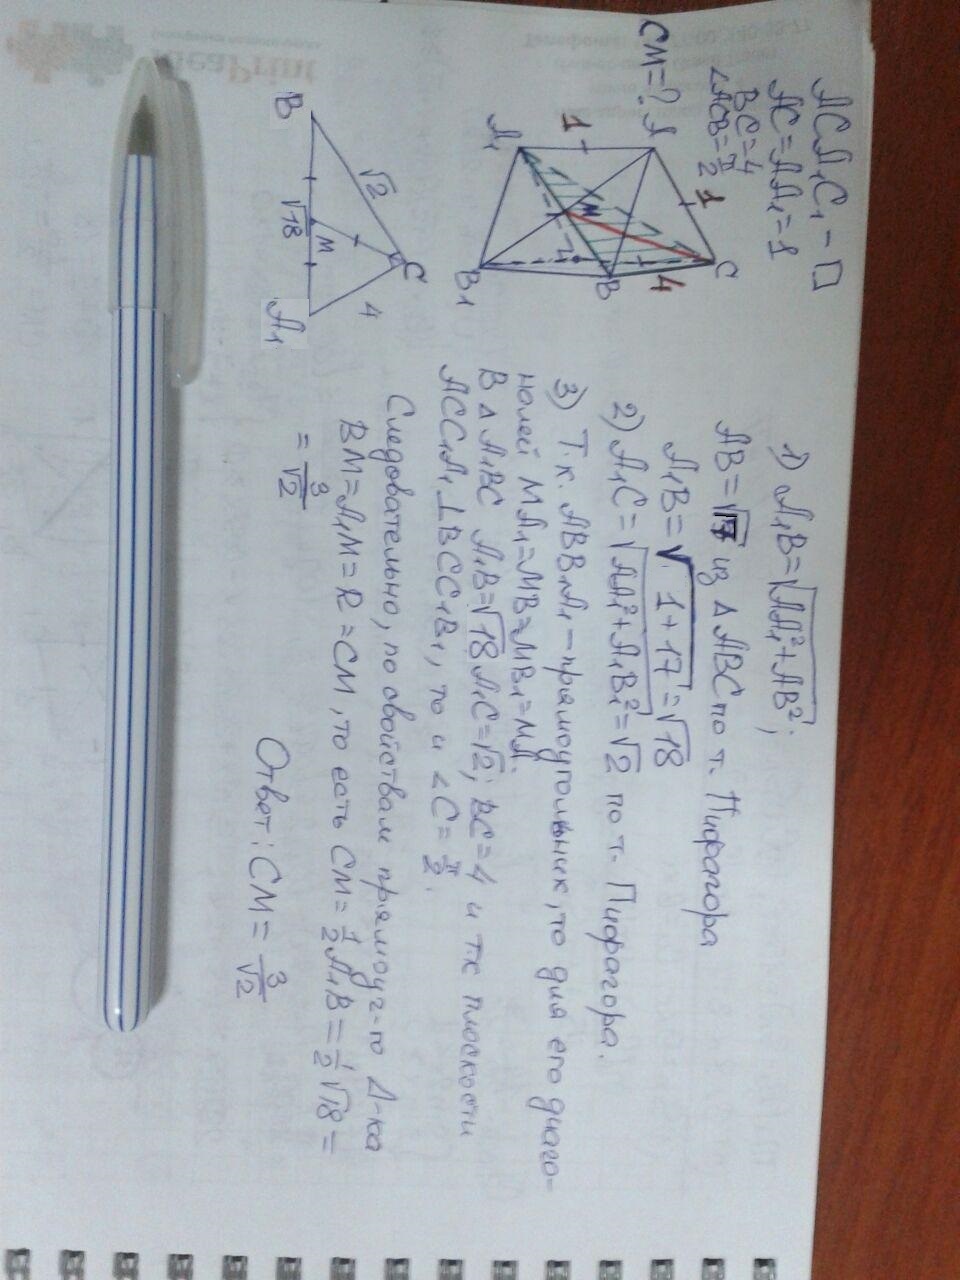 ACA₁C₁ - □
AC=AA₁=1
BC=4
∠ACB=π/2
CM=?
A
C
1
1
A₁
M
4
B
B₁
B
√2
C
√18
M
4
A₁
1) A₁B=√AA₁²+AB²;
AB=√17 из △ABC по т. Пифагора
A₁B=√1+17=√18
2) A₁C=√AA₁²+A₁B₁²=√2 по т. Пифагора.
3) Т.к. ABB₁A₁ - прямоугольник, то для его диаго-
налей MA₁=MB=MB₁=MA.
В △A₁BC A₁B=√18 A₁C=√2; BC=4 и т.к плоскости
ACC₁A₁⊥BCC₁B₁, то и ∠C=π/2.
Следовательно, по свойствам прямоуг-го Δ-ка
BM=A₁M=R=CM, то есть CM=1/2A₁B=1/2√18=
=3/√2
Ответ: CM=3/√2